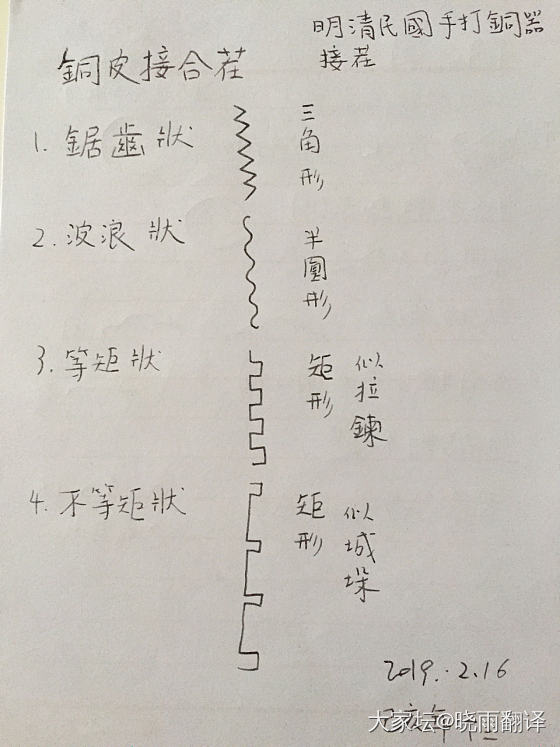 明清民國手打銅器
接茬
銅皮接合茬
1. 鋸齒狀 三角形
2. 波浪狀 半圓形
3. 等矩狀 矩形 似拉鍊
4. 不等矩狀 矩形 似城垛
2019.2.16
大家坛@晓雨翻译